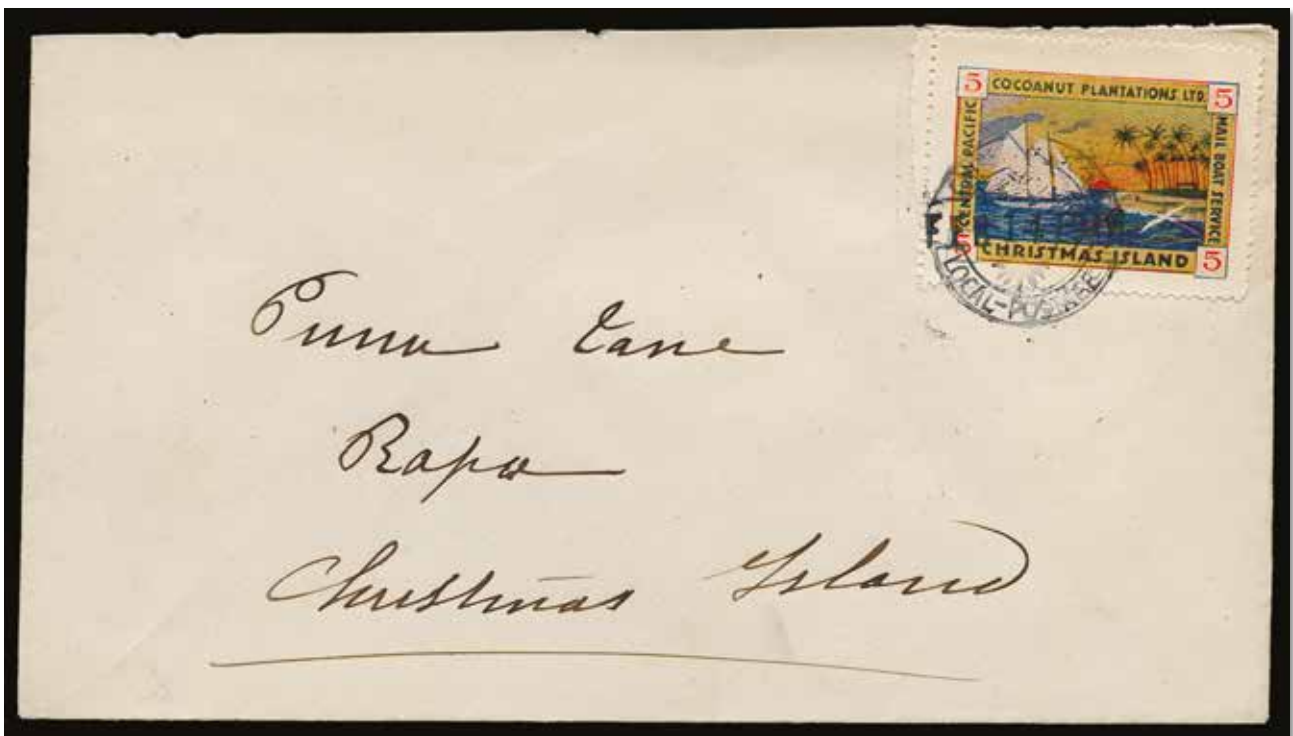 5 COCOANUT PLANTATIONS LTD. 5
CENTRAL PACIFIC
MAIL BOAT SERVICE
5 CHRISTMAS ISLAND 5
LOCAL-POSTAGE
Puna Tane
Rapa
Christmas Island